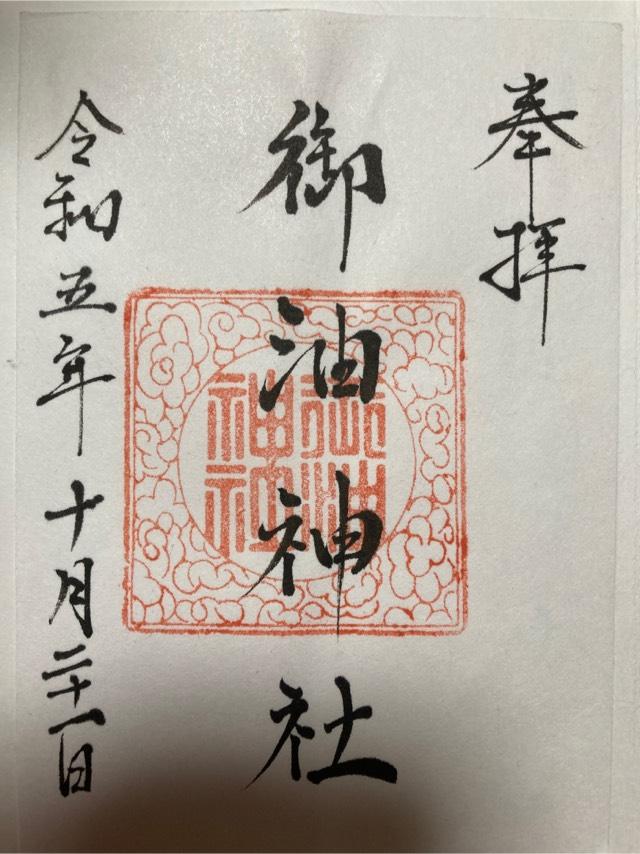 奉拝
御油神社
令和五年十月二十一日